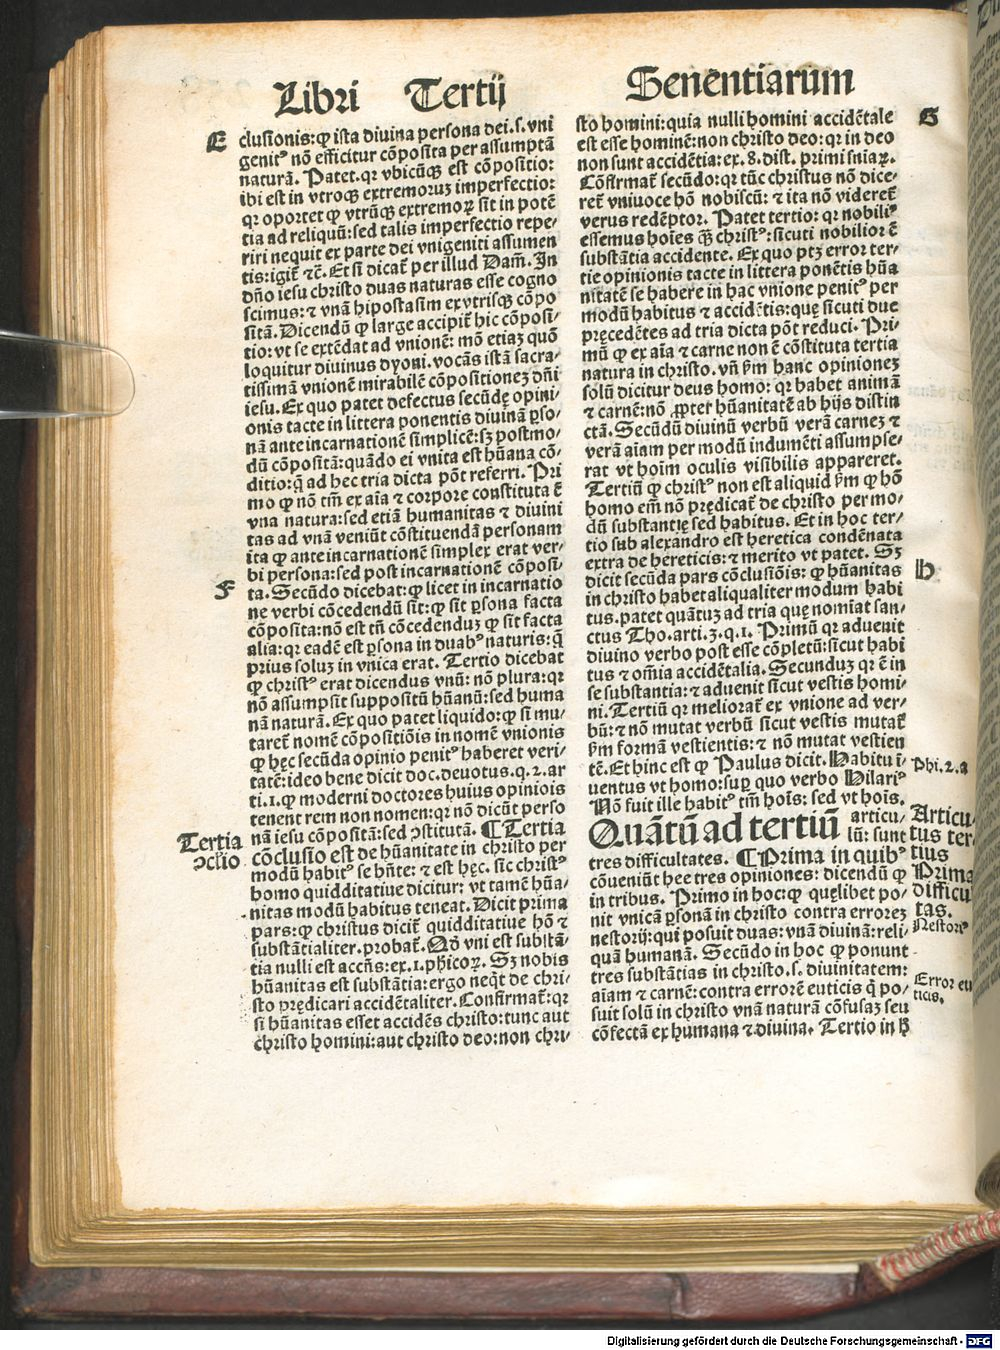 Libri Tertij Senentiarum
E
clusionis: ꝙ ista diuina persona dei .s. vni
genitꝰ nō efficitur cōposita per assumptā
naturā. Patet. qꝛ vbicūqꝫ est cōpositio:
ibi est in vtroqꝫ extremoruꝫ imperfectio:
qꝛ oportet ꝙ vtrūqꝫ extremoꝝ sit in potē
tia ad reliquū: sed talis imperfectio repe-
riri nequit ex parte dei vnigeniti assumen
tis: igit̄ ⁊c̄. Et si dicat̄ per illud Dam̄. In
dño iesu christo duas naturas esse cogno
scimus: ⁊ vnā hipostasim ex vtrisqꝫ cōpo
sitā. Dicendū ꝙ large accipit̄ hic cōposi-
tio: vt se extēdat ad vnionē: mō etiaꝫ quō
loquitur diuinus dyoni. vocās istā sacra-
tissimā vnionē mirabilē cōpositioneꝫ dñi
iesu. Ex quo patet defectus secūdę opini-
onis tacte in littera ponentis diuinā ꝑso-
nā ante incarnationē simplicē: sꝫ postmo-
dū cōpositā: quādo ei vnita est hūana cō-
ditio: q̄ ad hec tria dicta pōt referri. Pri
mo ꝙ nō tm̄ ex aīa ⁊ corpore constituta ē
vna natura: sed etiā humanitas ⁊ diuini
tas ad vnā veniūt cōstituendā personam
ita ꝙ ante incarnationē simplex erat ver-
bi persona: sed post incarnationē cōposi-
F
ta. Secūdo dicebat: ꝙ licet in incarnatio
ne verbi cōcedendū sit: ꝙ sit ꝑsona facta
cōposita: nō est tn̄ cōcedenduꝫ ꝙ sit facta
alia: qꝛ eadē est ꝑsona in duabꝰ naturis: q̄
prius soluꝫ in vnica erat. Tertio dicebat
ꝙ christꝰ erat dicendus vnū: nō plura: qꝛ
nō assumpsit suppositū hūanū: sed huma
nā naturā. Ex quo patet liquido: ꝙ si mu-
taret̄ nomē cōpositiōis in nomē vnionis
ꝙ hęc secūda opinio penitꝰ haberet veri-
tatē: ideo bene dicit doc. deuotus. q. 2. ar
ti. 1. ꝙ moderni doctores huius opiniois
tenent rem non nomen: qꝛ nō dicūt perso
nā iesu cōpositā: sed ↄstitutā. ¶ Tertia
Tertia
ↄclĩo
cōclusio est de hūanitate in christo per
modū habitꝰ se hn̄te: ⁊ est hęc. sic christꝰ
homo quidditatiue dicitur: vt tamē hūa-
nitas modū habitus teneat. Dicit prima
pars: ꝙ christus dicit̄ quidditatiue hō ⁊
substātialiter. probat̄. Qō vni est substā-
tia nulli est accñs: ex. 1. phicoꝝ. Sꝫ nobis
hūanitas est substātia: ergo neqt de chri-
sto prędicari accidētaliter. Confirmat̄: qꝛ
si hūanitas esset accidēs christo: tunc aut
christo homini: aut christo deo: non chri-
sto homini: quia nulli homini accidētale
G
est esse hominē: non christo deo: qꝛ in deo
non sunt accidētia: ex. 8. dist. primi sniaꝝ.
Cōfirmat̄ secūdo: qꝛ tūc christus nō dice-
ret̄ vniuoce hō nobiscū: ⁊ ita nō videret̄
verus redēptor. Patet tertio: qꝛ nobiliꝰ
essemus hoīes qꝫ christꝰ: sicuti nobilior ē
substātia accidente. Ex quo ptꝫ error ter-
tie opinionis tacte in littera ponētis hūa
nitatē se habere in hac vnione penitꝰ per
modū habitus ⁊ accidētis: quę sicuti due
pręcedētes ad tria dicta pōt reduci. Pri-
mū ꝙ ex aīa ⁊ carne non ē cōstituta tertia
natura in christo. vn̄ ẜm hanc opinioneꝫ
solū dicitur deus homo: qꝛ habet animā
⁊ carnē: nō ꝓpter hūanitatē ab hijs distin
ctā. Secūdū diuinū verbū verā carneꝫ ⁊
verā aīam per modū indumēti assumpse-
rat vt hoīm oculis visibilis appareret.
Tertiū ꝙ christꝰ non est aliquid ẜm ꝙ hō
homo em̄ nō prędicat̄ de christo per mo-
dū substantię sed habitus. Et in hoc ter-
tio sub alexandro est heretica condēnata
extra de hereticis: ⁊ merito vt patet. Sꝫ
H
dicit secūda pars cōclusiōis: ꝙ hūanitas
in christo habet aliqualiter modum habi
tus. patet quātuꝫ ad tria quę nomīat san-
ctus Tho. arti. 3. q. 1. Primū qꝛ aduenit
diuino verbo post esse cōpletū: sicut habi
tus ⁊ omīa accidētalia. Secunduꝫ qꝛ ē in
se substantia: ⁊ aduenit sicut vestis homi-
ni. Tertiū qꝛ meliorat̄ ex vnione ad ver-
bū: ⁊ nō mutat verbū sicut vestis mutat̄
ẜm formā vestientis: ⁊ nō mutat vestien
tē. Et hinc est ꝙ Paulus dicit. Habitu ī-
Phi. 2. a
uentus vt homo: suꝑ quo verbo Hilariꝰ
Nō fuit ille habitꝰ tm̄ hoīs: sed vt hoīs.
Quātū ad tertiū articu-
lū: sunt
Articu-
tus ter-
tius
tres difficultates. ¶ Prima in quibꝰ
Prima
difficu
tas.
cōueniūt hee tres opiniones: dicendū ꝙ
in tribus. Primo in hoc: ꝙ quęlibet po-
nit vnicā ꝑsonā in christo contra erroreꝫ
Nestoriꝰ
nestorij: qui posuit duas: vnā diuinā: reli-
quā humanā. Secūdo in hoc ꝙ ponunt
tres substātias in christo .s. diuinitatem:
Error eu
ticis.
aīam ⁊ carnē: contra errorē euticis q̄ po-
suit solū in christo vnā naturā cōfusaꝫ seu
cōfectā ex humana ⁊ diuina. Tertio in
Digitalisierung gefördert durch die Deutsche Forschungsgemeinschaft - DFG